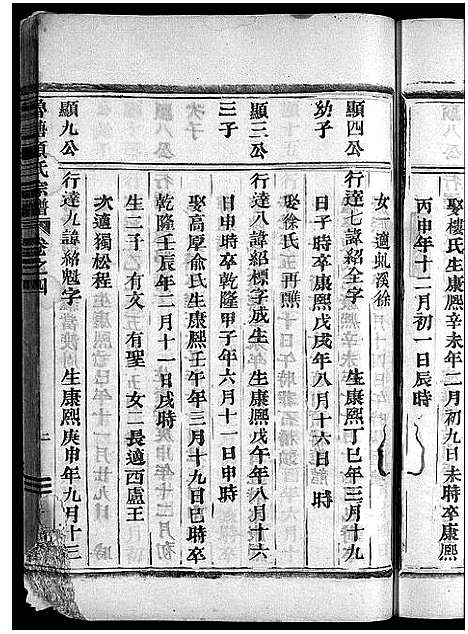 娶樓氏生康熙辛未年二月初九日未時卒康熙
丙申年十二月初一日辰時
女一適虬溪徐
顯四公 行達七諱紹全字 生康熙丁巳年三月十九
幼子 日子時卒康熙戊戌年八月十六日 時
娶徐氏 再醮
顯三公 行達八諱紹標字成生 生康熙戊午年八月十六
三子 日申時卒乾隆甲子年六月十一日申時
娶高厚俞氏生康熙壬午年三月十九日巳時卒
乾隆壬辰年二月十一日戌時
生二子 有文 有聖 女二長適西盧王
次適獨松程
顯九公 行達九諱紹魁字 生康熙庚申年九月十三
項氏宗譜 卷之四